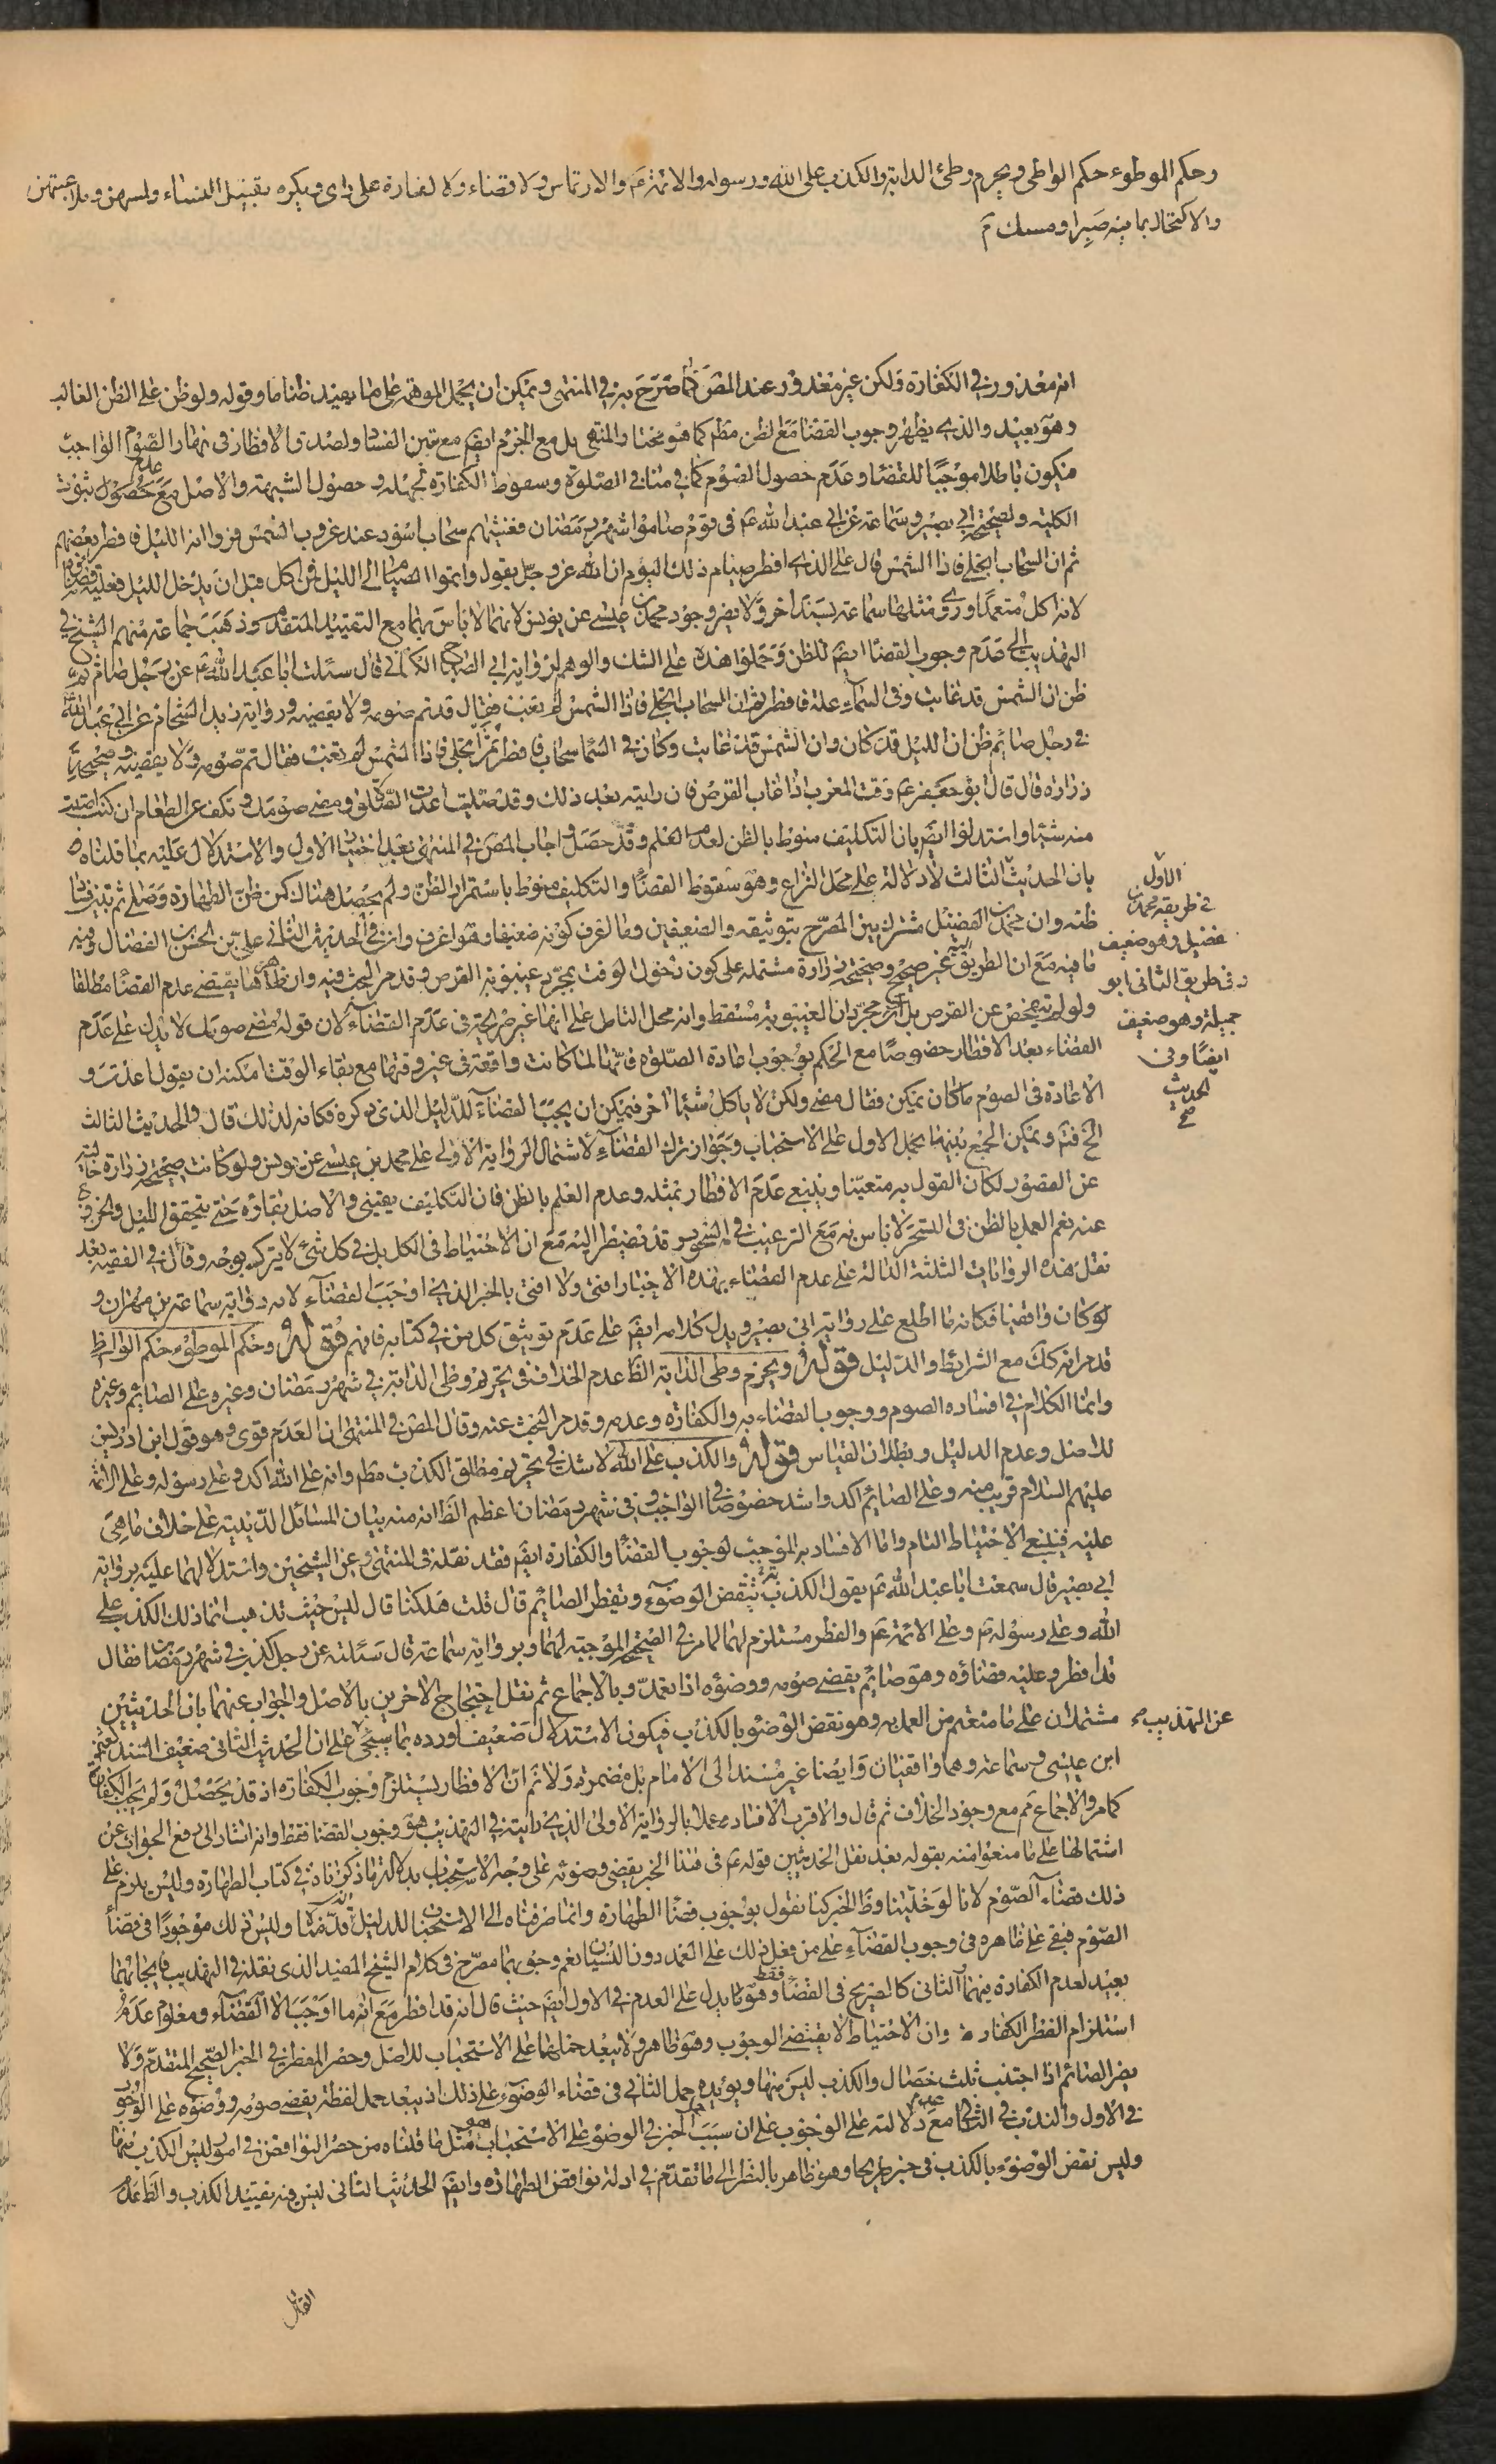 وحكم الموطوء حكم الواطي ويحرم وطئ الدابة والكذب على الله ورسوله والائمة عم والارتماس ولا قضاء ولا كفارة على راى ويكره تقبيل النساء ولمسهن وملاعبتهن
والاكتحال بما فيه صبر او مسك م
انه معذور في الكفارة ولكن غير معذور عند المص كما صرح به في المنتهى ويمكن ان يحمل الوهم على ما يفيد ظنا ما وقوله ولو ظن على الظن الغالب
وهو بعيد والذي يظهر وجوب القضا مع الظن مطم كما هو مختا والمنتهى بل مع الجزم ايضم مع تبين الفساد لصدق الافطار في نهار الصوم الواجب
فيكون باطلا موجبا للقضا وعدم حصول الصوم كما في منافي الصلوة وسقوط الكفارة لجهله وحصول الشبهة والاصل مع عدم حصول ثبوت
الكلية ولصحيحة ابي بصير وسماعة عن ابي عبد الله عم فى قوم صاموا شهر رمضان فغشيهم سحاب اسود عند غروب الشمس فراوا انه الليل فافطر بعضهم
ثم ان السحاب انجلى فاذا الشمس قال على الذي افطر صيام ذلك اليوم ان الله عز وجل يقول واتموا الصيام الى الليل فمن اكل قبل ان يدخل الليل فعليه قضاؤه
لانه اكل متعمدا وروى مثلها سماعة بسند اخر ولا يضر وجود محمد بن عيسى عن يونس لانهما لا باس بهما مع التقييد المتقدم وذهب جماعة منهم الشيخ في
التهذيب الى عدم وجوب القضا ايضم للظن وحملوا هذه على الشك والوهم لرواية ابي الصباح الكناني قال سئلت ابا عبد الله عم عن رجل صام ثم
ظن ان الشمس قد غابت وفى السماء علة فافطر ثم ان السحاب انجلى فاذا الشمس لم تغب فقال قد تم صومه ولا يقضيه ورواية زيد الشحام عن ابي عبد الله
في رجل صائم ظن ان الليل قد كان وان الشمس قد غابت وكان في السما سحاب فافطر ثم انجلى فاذا الشمس لم تغب فقال تم صومه ولا يقضيه وصحيحة
زرارة قال قال ابو جعفر عم وقت المغرب اذا غاب القرص فان رايته بعد ذلك وقد صليت اعدت الصلوة ومضى صومك وتكف عن الطعام ان كنت اصبت
منه شيئا واستدلوا ايضم بان التكليف منوط بالظن لعدم العلم وقد حصل واجاب المص في المنتهى بعد اختيار الاول والاستدلال عليه بما قلناه
بان الحديث الثالث لا دلالة على محل النزاع وهو سقوط القضا والتكليف منوط باستمرار الظن ولم يحصل هنا كمن ظن الطهارة وصلى ثم تبين فساد
ظنه وان محمد بن الفضيل مشترك بين المصرح بتوثيقه والضعيفين وما اعرف كونه ضعيفا وهو اعرف وان في الحديث الثاني علي بن الحسن بن الفضال وفيه
ما فيه مع ان الطريق اليه غير صحيح وصحيحة زرارة مشتملة على كون دخول الوقت بمجرد غيبوبة القرص وقد مر البحث فيه وان ظاهرها يقتضى عدم القضا مطلقا
ولو لم يتفحص عن القرص بل اثر مجرد ان الغيبوبة مسقط وانه محل التامل على انها غير صريحة في عدم القضاء لان قوله مضى صومك لا يدل على عدم
القضاء بعد الافطار خصوصا مع الحكم بوجوب اعادة الصلوة فانها لما كانت واقعة في غير وقتها مع بقاء الوقت امكنه ان يقول اعدت و
الاعادة فى الصوم ما كان يمكن فقال مضى ولكن لا ياكل شيئا اخر فيمكن ان يجب القضاء للدليل الذي ذكره فكانه لذلك قال والحديث الثالث
الخ فتم ويمكن الجمع بينهما بحمل الاول على الاستحباب وجواز ترك القضاء لاشتمال الرواية الاولى على محمد بن عيسى عن يونس ولو كانت صحيحة زرارة خالية
عن القصور لكان القول به متعينا وينبغي عدم الافطار بمثله وعدم العلم بالظن فان التكليف يقيني والاصل بقاؤه حتى يتحقق الليل والخروج
عنه نعم العمل بالظن فى السحر لا باس به مع الترغيب في السحور قد نضيطر اليه مع ان الاحتياط فى الكل بل في كل شئ لا يترك بوجه وقال في الفقيه بعد
نقل هذه الروايات الثلثة الدالة على عدم القضاء بهذه الاخبار افتى ولا افتى بالخبر الذي اوجب القضاء لانه رواية سماعة بن مهران و
لو كان واقفيا فكانه ما اطلع على رواية ابي بصير ويدل كلامه ايضم على عدم توثيق كل من في كتابه فافهم قوله وحكم الموطوء حكم الواطئ
قد مر انه كك مع الشرائط والدليل قوله ويحرم وطى الدابة الظ عدم الخلاف في تحريم وطى الدابة في شهر رمضان وغيره على الصائم وغيره
وانما الكلام في افساده الصوم ووجوب القضاء به والكفارة وعدمه وقد مر البحث عنه وقال المص في المنتهى ان العدم قوى وهو قول ابن ادريس
للاصل وعدم الدليل وبطلان القياس قوله والكذب على الله لا شك في تحريم مطلق الكذب مطم وانه على الله اكد وعلى رسوله وعلى الائمة
عليهم السلام قريب منه وعلى الصائم اكد واشد خصوصا في الواجب وفي شهر رمضان اعظم الظ انه منه بيان المسائل الدينية على خلاف ما هي
عليه فينبغي الاحتياط التام واما الافساد به الموجب لوجوب القضا والكفارة ايضم فقد نقله فى المنتهى عن الشيخين واستدلا لهما عليه برواية
ابي بصير قال سمعت ابا عبد الله عم يقول الكذبة تنقض الوضوء وتفطر الصائم قال قلت هلكنا قال ليس حيث تذهب انما ذلك الكذب على
الله وعلى رسوله ص وعلى الائمة عم والفطر مستلزم لهما لما مر في الصحيحة الموجبة لهما وبرواية سماعة قال سئلته عن رجل كذب في شهر رمضان فقال
قد افطر وعليه قضاؤه وهو صائم يقضي صومه ووضوءه اذا تعمد وبالاجماع ثم نقل احتجاج الاخرين بالاصل والجواب عنهما بان الحديثين
مشتملان على ما منعتم من العمل به وهو نقض الوضوء بالكذب فيكون الاستدلال ضعيفا ورده بما سيجئ على ان الحديث الثاني ضعيف السند
ابن عيسى وسماعة وهما واقفيان وايضا غير مسند الى الامام بل مضمرة ولا نم ان الافطار يستلزم وجوب الكفارة اذ قد يحصل ولم يجب الكفارة
كما مر والاجماع ثم مع وجود الخلاف ثم قال والاقرب الافساد عملا بالرواية الاولى الذي رايته في التهذيب هو وجوب القضا فقط وانه اشار الى دفع الجواب عن
اشتمالها على ما منعوا منه بقوله بعد نقل الحديثين قوله عم فى هذا الخبر يقضي وضوئه على وجه الاستحباب بدلالة ما ذكرناه في كتاب الطهارة وليس يلزم على
ذلك قضاء الصوم لانا لو خلينا وظ الخبر كنا نقول بوجوب قضا الطهارة وانما صرفناه الى الاستحباب للدليل الذي قدمنا وليس ذلك موجودا في قضا
الصوم فبقي على ظاهره في وجوب القضاء على من فعل ذلك على العمد دون النسيان نعم وجوبهما مصرح فى كلام الشيخ المفيد الذي نقله في التهذيب فايجابهما
بعيد لعدم الكفارة فيهما الثاني كالصريح في القضا فقط وهو ما يدل على العدم في الاول ايضم حيث قال انه قد افطر مع انه ما اوجب الا القضاء ومعلوم عدم
استلزام الفطر الكفارة وان الاحتياط لا يقتضى الوجوب وهو ظاهر ولا يبعد حملهما على الاستحباب للاصل وحصر المفطر في الخبر الصحيح المتقدم ولا
يضر الصائم اذا اجتنب ثلث خصال والكذب ليس منها ويؤيده حمل الثاني في قضاء الوضوء على ذلك اذ يبعد حمل لفظة يقضي صومه ووضوءه على الوجوب
في الاول والندب في الثاني مع عدم دلالته على الوجوب على ان سبب حمل الخبر في الوضوء على الاستحباب هو مثل ما قلناه من حصر النواقض في امور ليس الكذب منها
وليس نقض الوضوء بالكذب في خبر صريحا وهو ظاهر بالنظر الى ما تقدم في ادلة نواقض الطهارة وايضم الحديث الثاني ليس فيه تقييد الكذب والظ عدم
الاول
في طريقه محمد بن
فضيل وهو ضعيف
وفى طريق الثاني ابو
جميلة وهو ضعيف
ايضا وفى
الحديث
صح
عن التهذيب
القائل